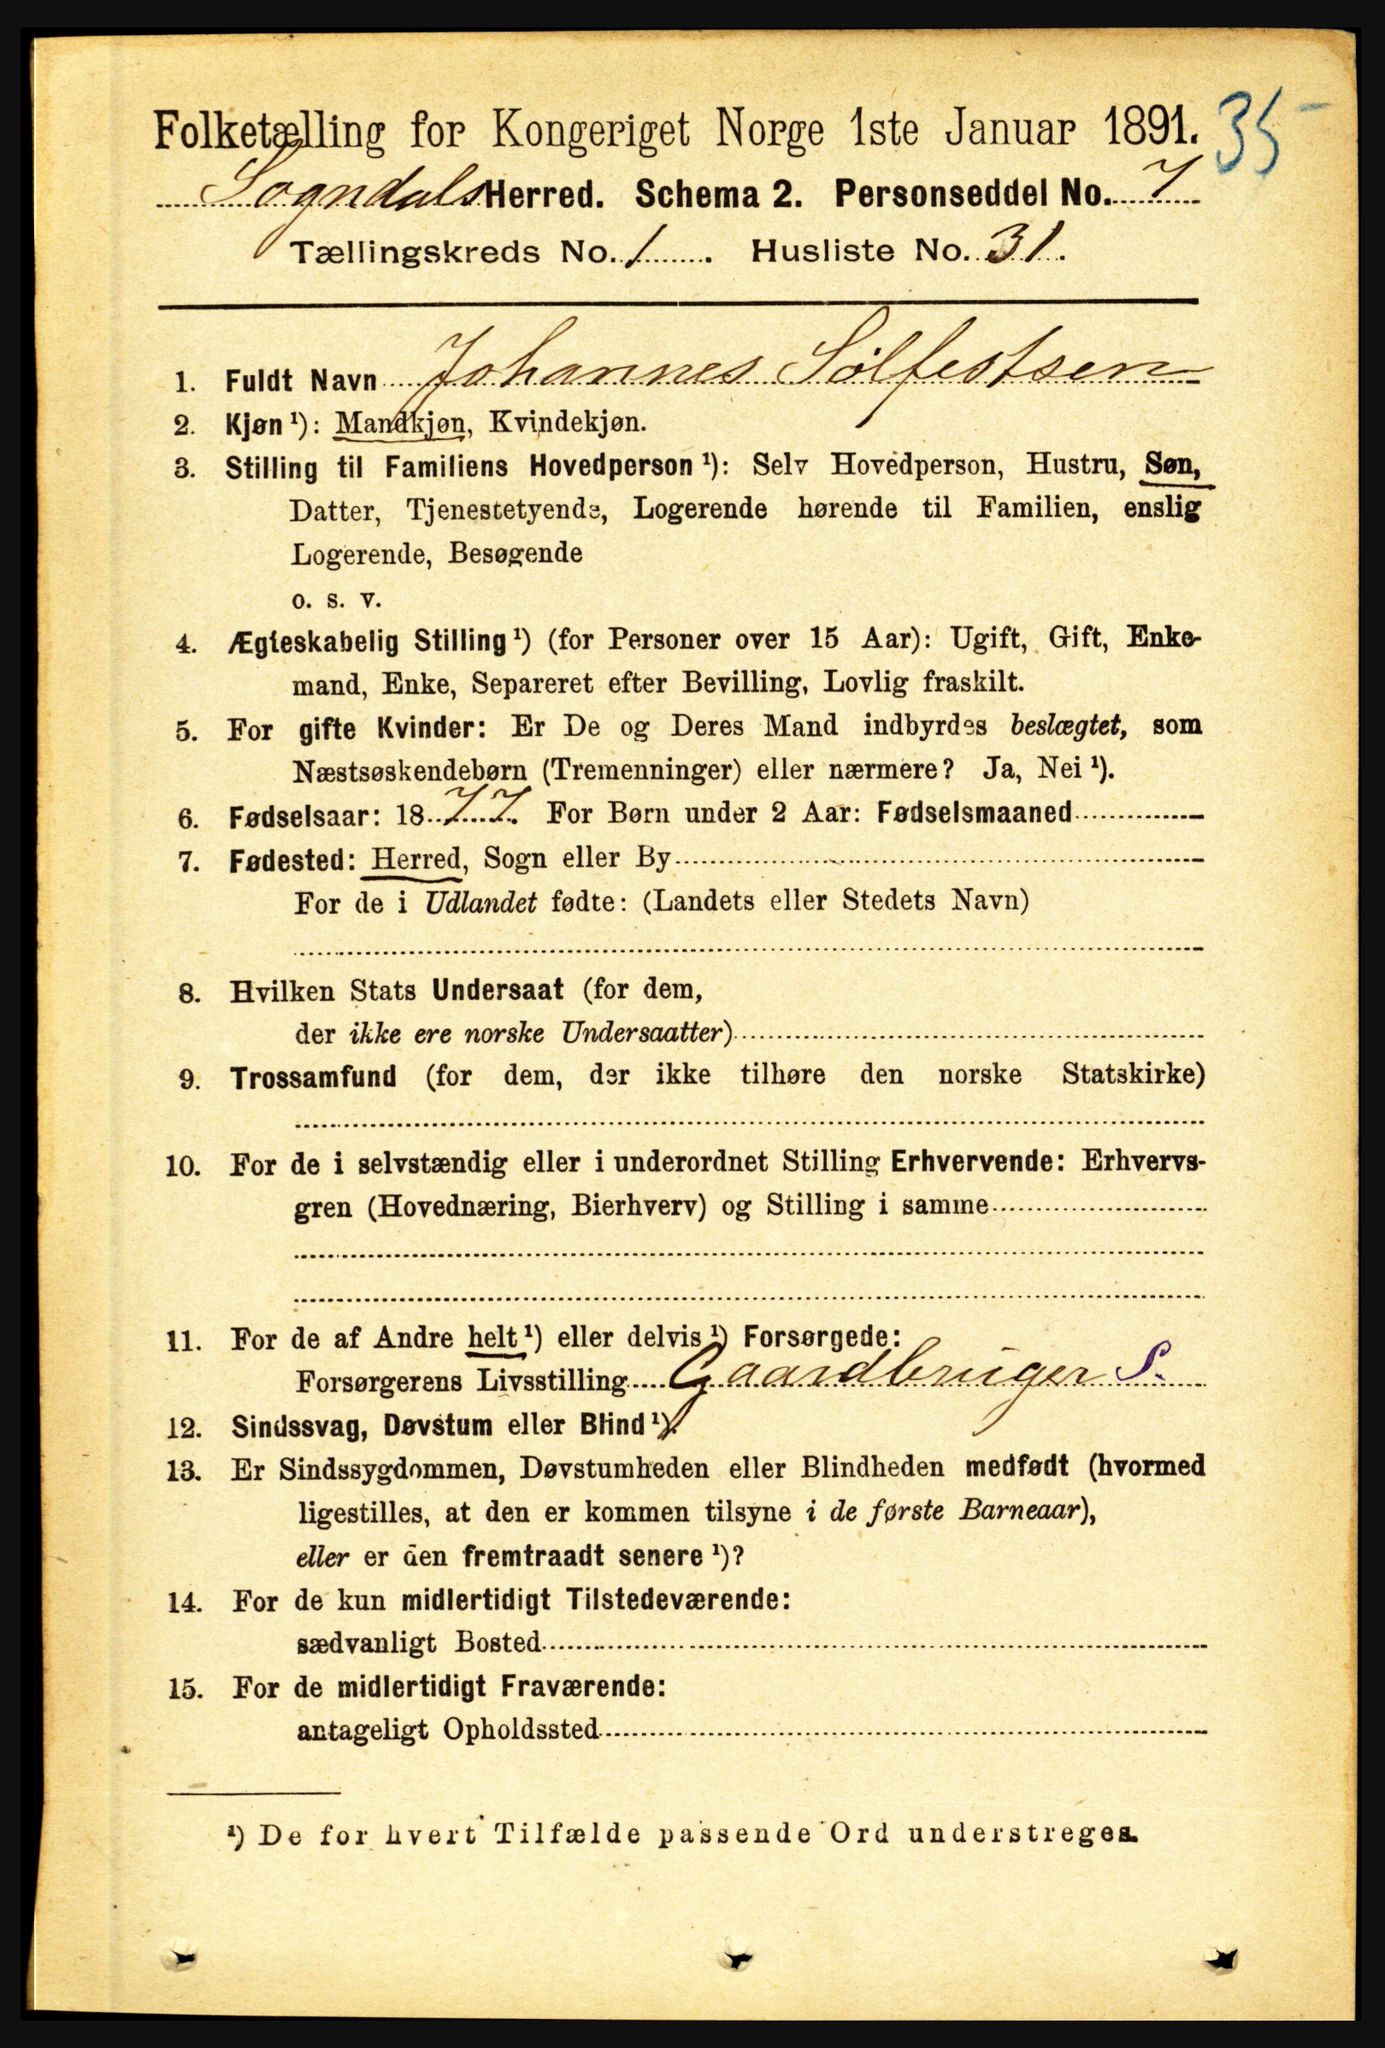 Folketælling for Kongeriget Norge 1ste Januar 1891.
35
Sogndals Herred. Schema 2. Personseddel No. 7
Tællingskreds No. 1. Husliste No. 31.
1. Fuldt Navn Johannes Sölfestsen
2. Kjøn ¹): Mandkjøn, Kvindekjøn.
3. Stilling til Familiens Hovedperson ¹): Selv Hovedperson, Hustru, Søn,
Datter, Tjenestetyende, Logerende hørende til Familien, enslig
Logerende, Besøgende
o. s. v.
4. Ægteskabelig Stilling ¹) (for Personer over 15 Aar): Ugift, Gift, Enke-
mand, Enke, Separeret efter Bevilling, Lovlig fraskilt.
5. For gifte Kvinder: Er De og Deres Mand indbyrdes beslægtet, som
Næstsøskendebørn (Tremenninger) eller nærmere? Ja, Nei ¹).
6. Fødselsaar: 1877. For Børn under 2 Aar: Fødselsmaaned
7. Fødested: Herred, Sogn eller By
For de i Udlandet fødte: (Landets eller Stedets Navn)
8. Hvilken Stats Undersaat (for dem,
der ikke ere norske Undersaatter)
9. Trossamfund (for dem, der ikke tilhøre den norske Statskirke)
10. For de i selvstændig eller i underordnet Stilling Erhvervende: Erhvervs-
gren (Hovednæring, Bierhverv) og Stilling i samme
11. For de af Andre helt ¹) eller delvis ¹) Forsørgede:
Forsørgerens Livsstilling Gaardbruger S.
12. Sindssvag, Døvstum eller Blind ¹).
13. Er Sindssygdommen, Døvstumheden eller Blindheden medfødt (hvormed
ligestilles, at den er kommen tilsyne i de første Barneaar),
eller er den fremtraadt senere ¹)?
14. For de kun midlertidigt Tilstedeværende:
sædvanligt Bosted
15. For de midlertidigt Fraværende:
antageligt Opholdssted
¹) De for hvert Tilfælde passende Ord understreges.